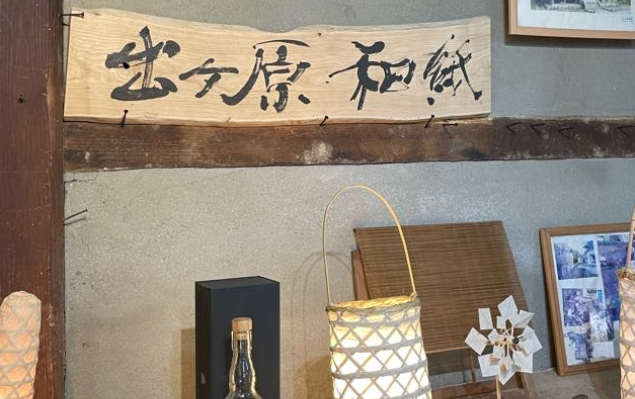 出ケ原 和紙